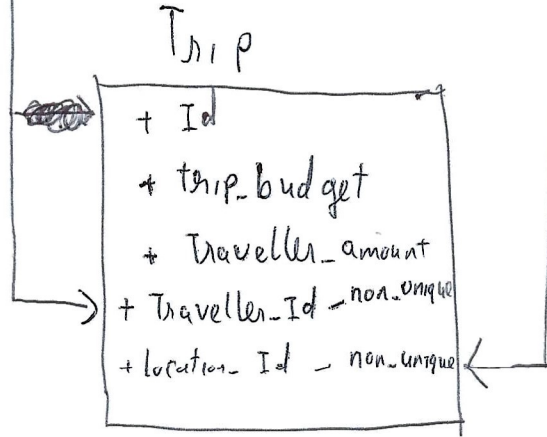 Trip
+ Id
+ trip_budget
+ Traveller_amount
+ Traveller_Id - non_unique
+ location_Id - non_unique